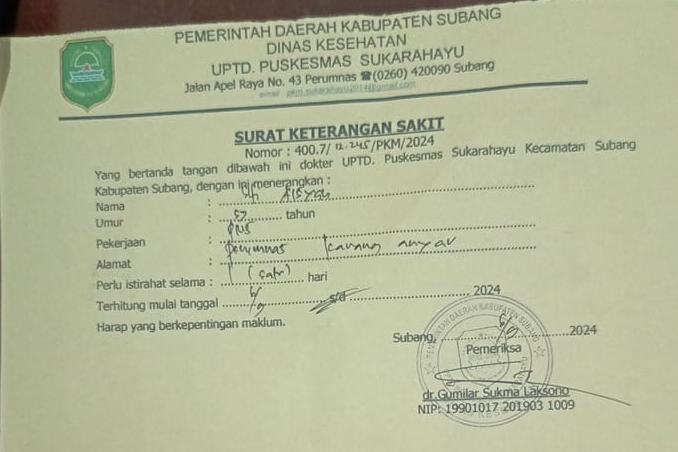 PEMERINTAH DAERAH KABUPATEN SUBANG
DINAS KESEHATAN
UPTD. PUSKESMAS SUKARAHAYU
Jalan Apel Raya No. 43 Perumnas ☎(0260) 420090 Subang
email : pkm.sukarahayu2014@gmail.com
SURAT KETERANGAN SAKIT
Nomor : 400.7/ 12.245/PKM/2024
Yang bertanda tangan dibawah ini dokter UPTD. Puskesmas Sukarahayu Kecamatan Subang
Kabupaten Subang, dengan ini menerangkan :
Nama : Aisyah
Umur : 57 tahun
Pekerjaan : PNS
Alamat : perumnas karang anyar
Perlu istirahat selama : 1 (satu) hari
Terhitung mulai tanggal 6/9 s/d 2024
Harap yang berkepentingan maklum.
Subang, 6/9 2024
Pemeriksa
PEMERINTAH DAERAH KABUPATEN SUBANG
dr.Gumilar Sukma Laksono
NIP: 19901017 201903 1009